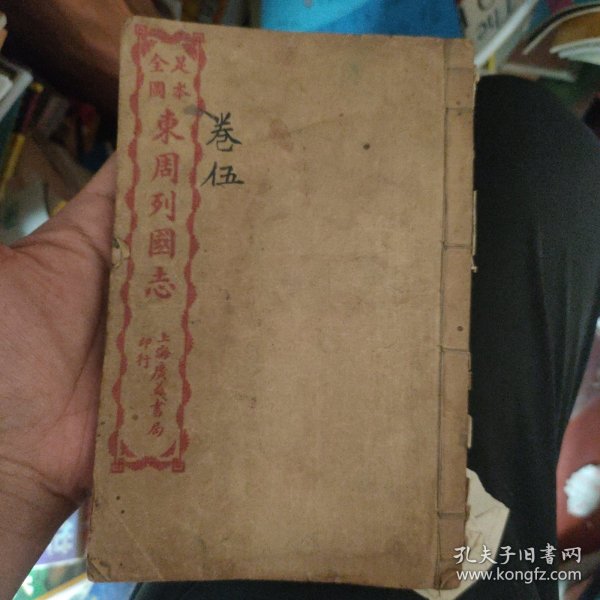 足本
全圖
東周列國志
上海廣益書局
印行
卷伍
孔夫子旧书网
www.kongfz.com